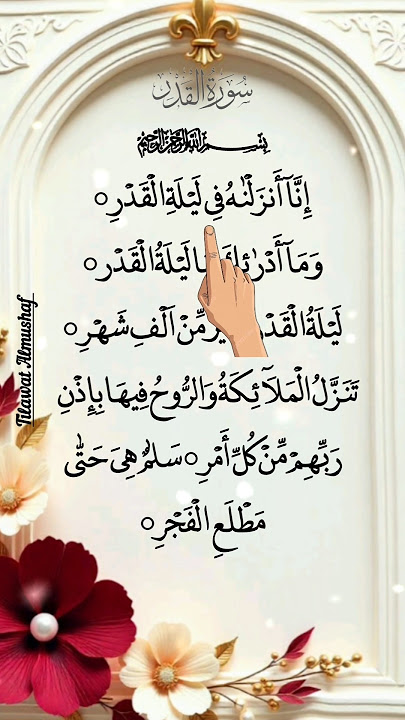 سُورَةُ الْقَدْرِ
بِسْمِ اللَّهِ الرَّحْمَنِ الرَّحِيمِ
إِنَّآ أَنزَلْنٰهُ فِي لَيْلَةِ الْقَدْرِ ○
وَمَآ أَدْرٰىٰكَ لَيْلَةُ الْقَدْرِ ○
لَيْلَةُ الْقَدْرِ مِّنْ اَلْفِ شَهْرٍ ○
تَنَزَّلُ الْمَلَآئِكَةُ وَالرُّوحُ فِيهَا بِإِذْنِ
رَبِّهِمْ مِّنْ كُلِّ أَمْرٍ ○ سَلٰمٌ هِيَ حَتّٰى
مَطْلَعِ الْفَجْرِ ○
Tilawat Almushaf